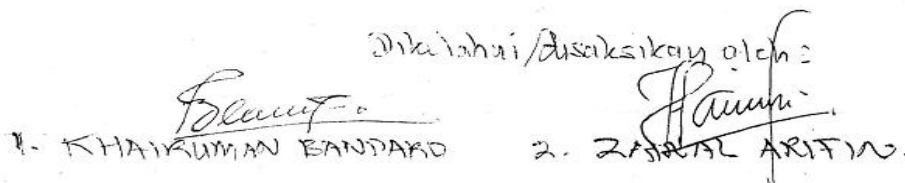 Diketahui/disaksikan oleh :
1. KHAIRUMAN BANDARO 2. ZAINAL ARIFIN.